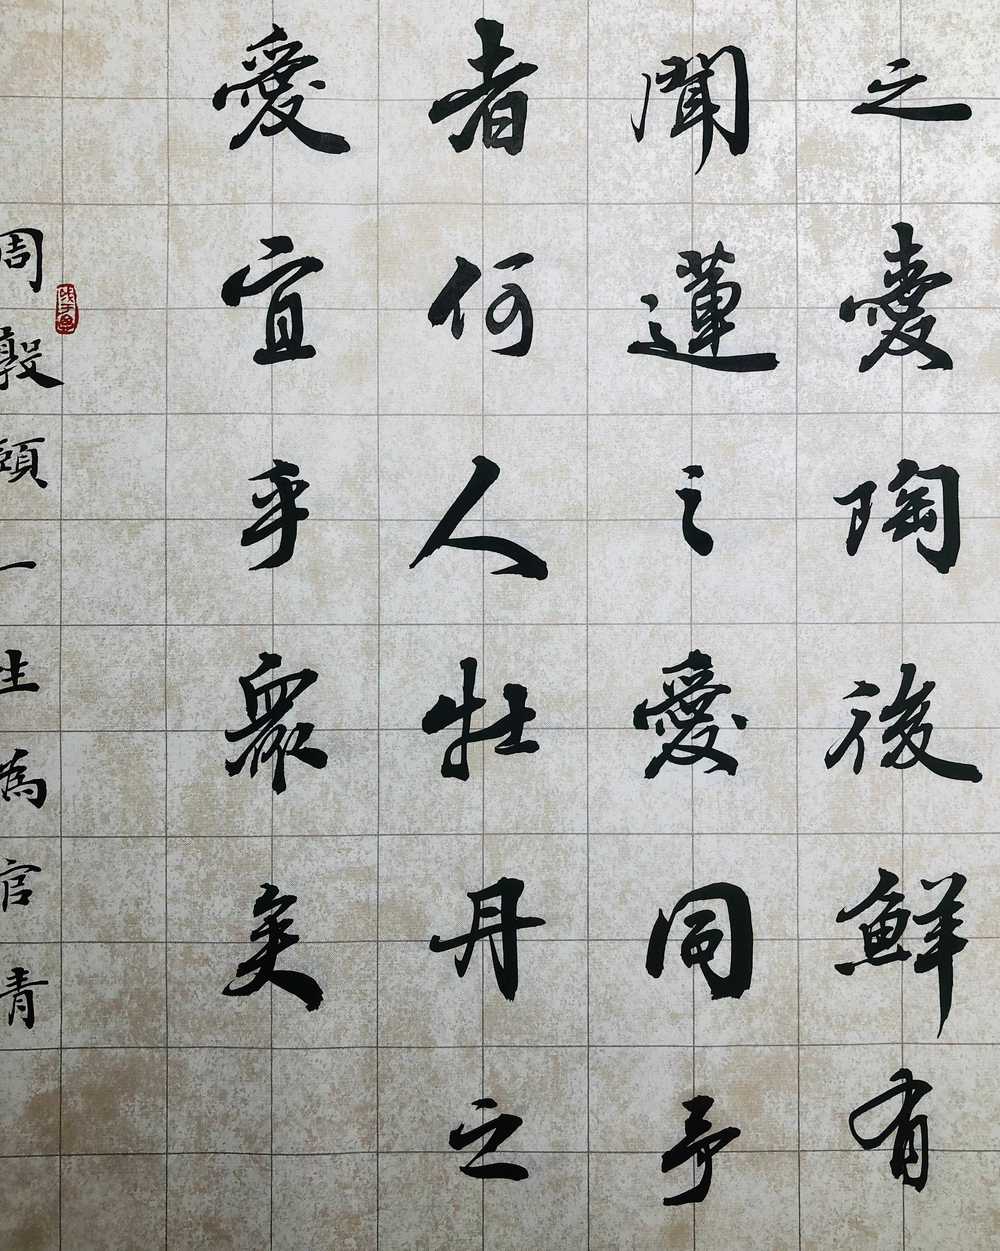 之愛陶後鮮有
聞蓮之愛同予
者何人牡丹之
愛宜乎衆矣
周敦頤一生為官青